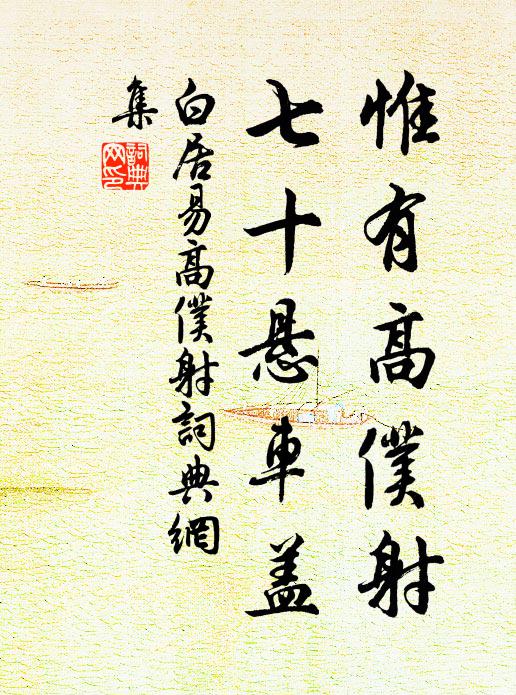 惟有高僕射
七十悬車盖
白居易高僕射詞典網
集
詞典
网印